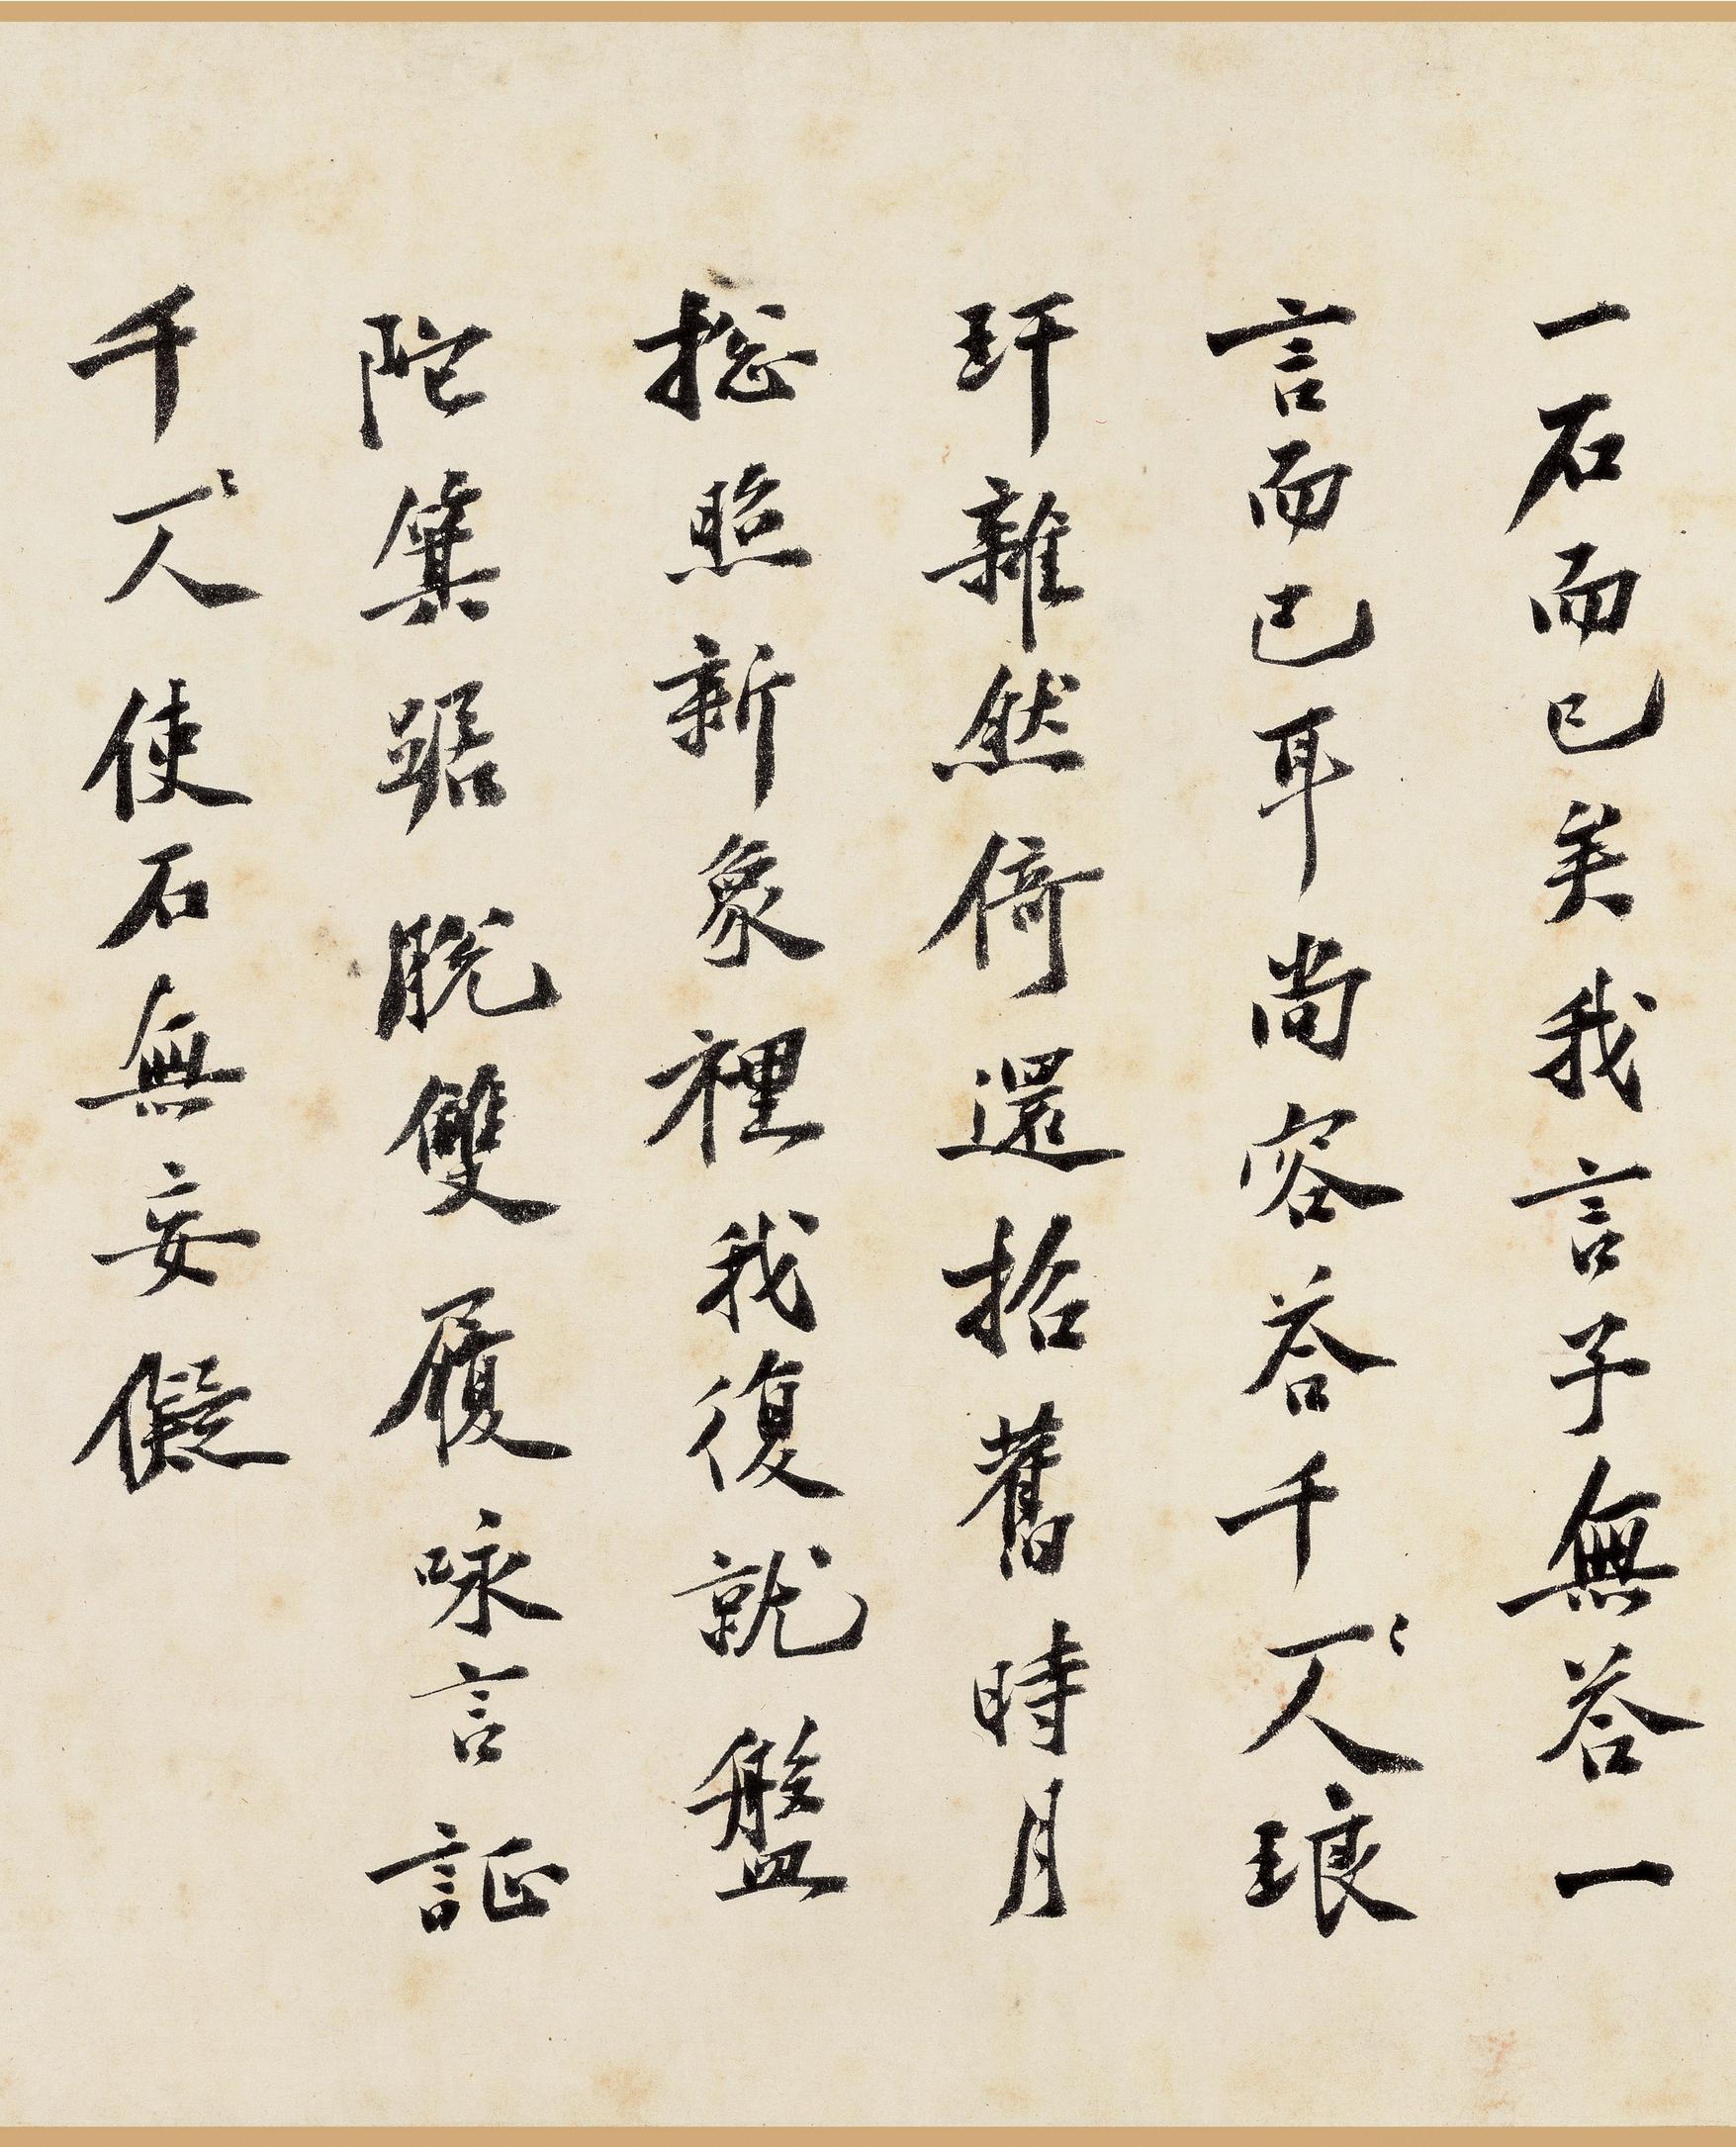 一石而已矣我言子無荅一
言而已耳尚容荅千人〻琅
玕雜然倚還拾舊時月
揔照新象裡我復就盤
陀箕踞脫雙履咏言証
千人〻使石無妄儗